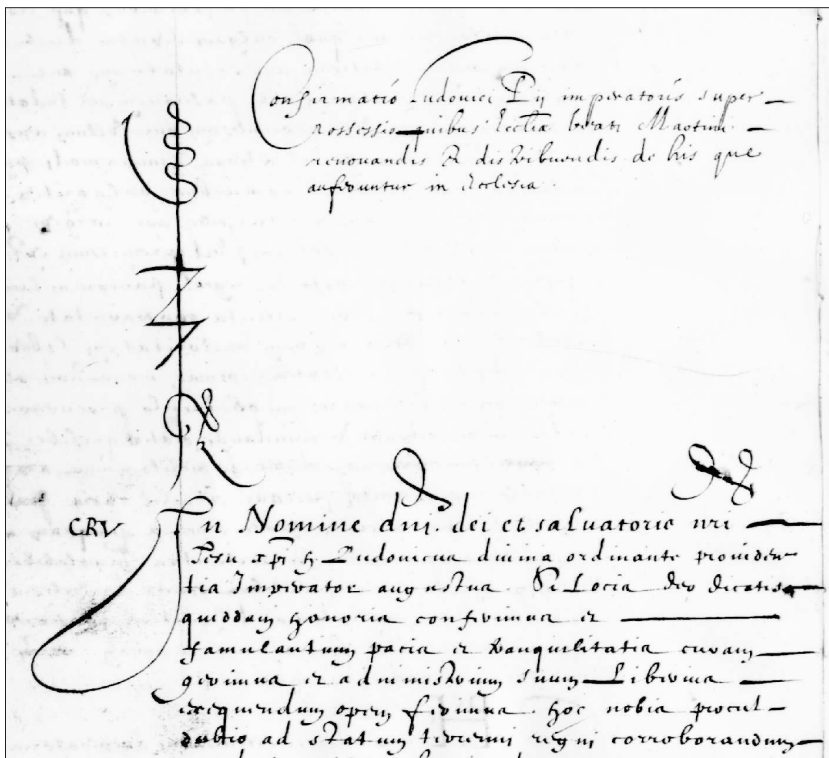 Confirmatio Ludovici Pij imperatoris super
Possessionibus Ecclia beati Martini
renovandis & distribuendis de his que
auferuntur in Ecclesia.
CRV
In Nomine dni. dei et salvatoris nri
Jesu xpi Ludovicus divina ordinante providen
tia Imperator augustus. Si Locis deo dicatis
quiddam honoris conferimus et
famulantium pacis et tranquilitatis curam
gerimus et administrium suum Liberius
exequendum opem ferimus. hoc nobis procul
dubio ad statum terreni regni corroborandum